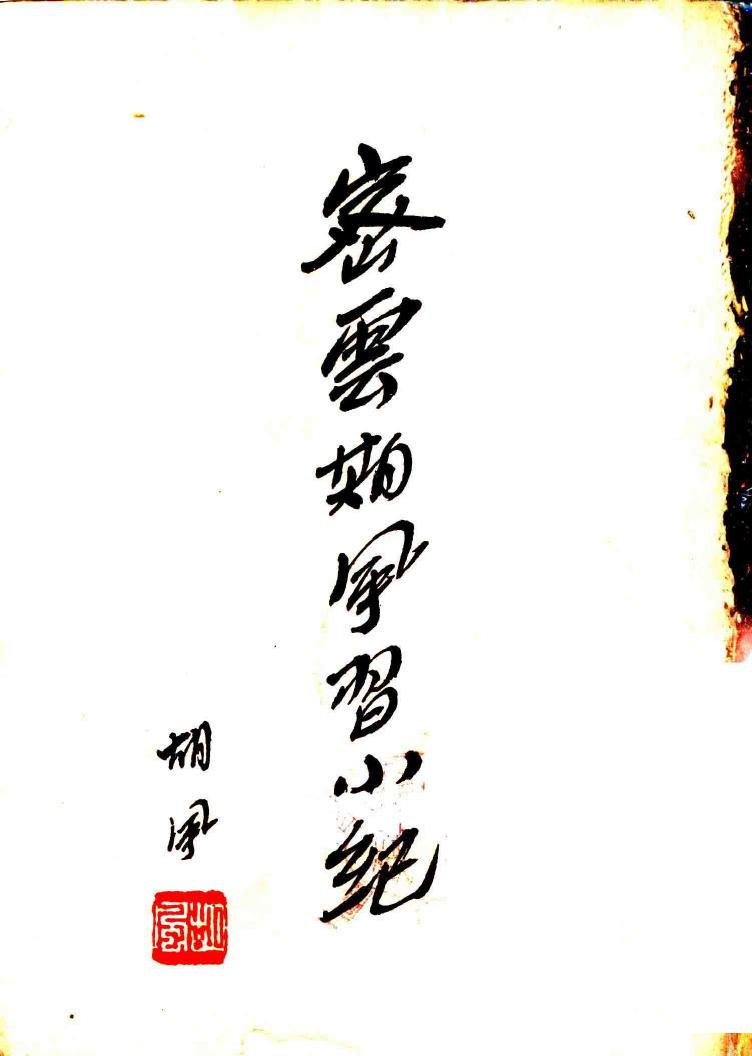 密雲期風習小紀
胡風
胡風